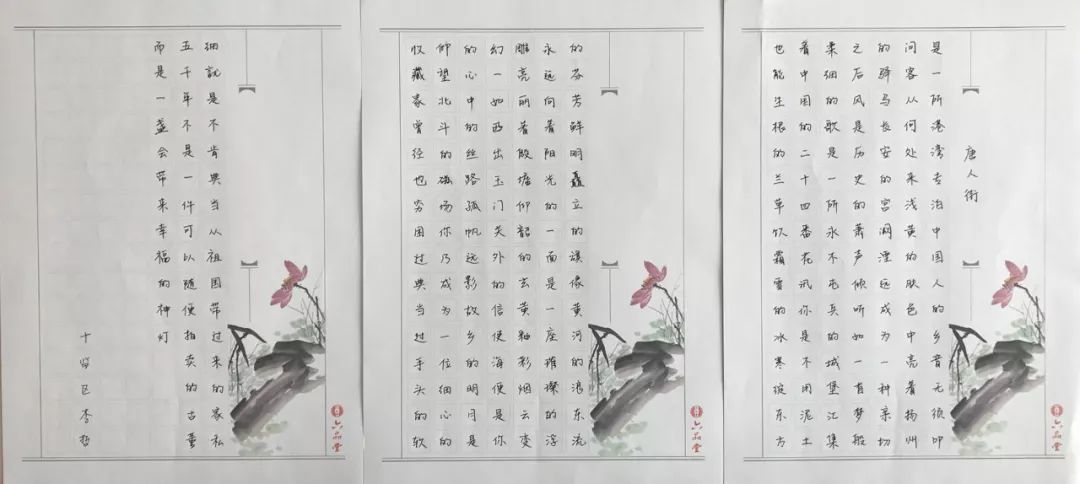 唐人街
是一所港湾专泊中国人的乡音无须叩
问客从何处来浅黄的肤色中亮着扬州
的驿马长安的宫阙漂远成为一种亲切
之后风是历史的萧声倾听如一有梦般
柔细的歌是一所永不屯兵的城堡汇集
着中国的二十四番花讯你是不用泥土
也能生根的兰草饮霜雪的冰寒绽东方
六品堂
的芬芳鲜明矗立的谟像黄河的浪东流
永远向着阳光的一面是一座璀璨的浮
雕亮丽着殷墟仰韶的玄黄釉彩烟云变
幻一如西出玉门关外的信使海便是你
的心中的丝路孤帆远影故乡的明月是
仰望北斗的磁场你乃成为一位细心的
收藏家曾经也穷困过典当过手头的软
六品堂
细就是不肯典当从祖国带过来的家私
五千年不是一件可以随便拍卖的古董
而是一盏会带来幸福的神灯
六品堂